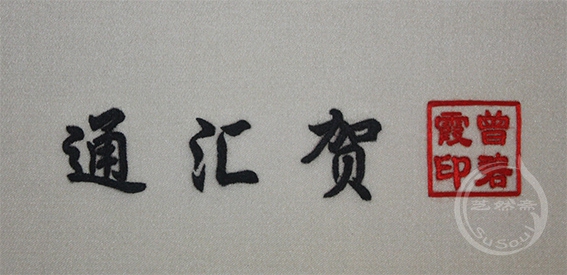 通汇贺
曾
霞印
艺然斋
SuSoul